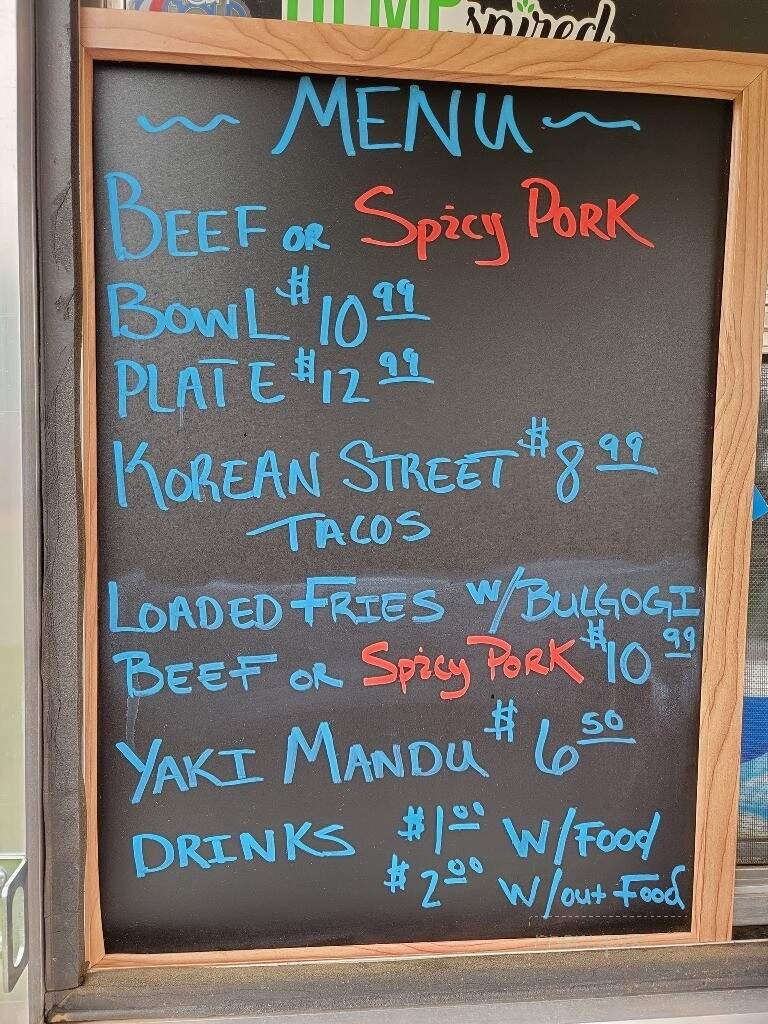 HEMPspired
~ MENU ~
BEEF OR Spicy PORK
BOWL $10.99
PLATE $12.99
KOREAN STREET $8.99
TACOS
LOADED FRIES W/BULGOGI
BEEF OR Spicy PORK $10.99
YAKI MANDU $6.50
DRINKS $1.00 W/Food
$2.00 W/out Food